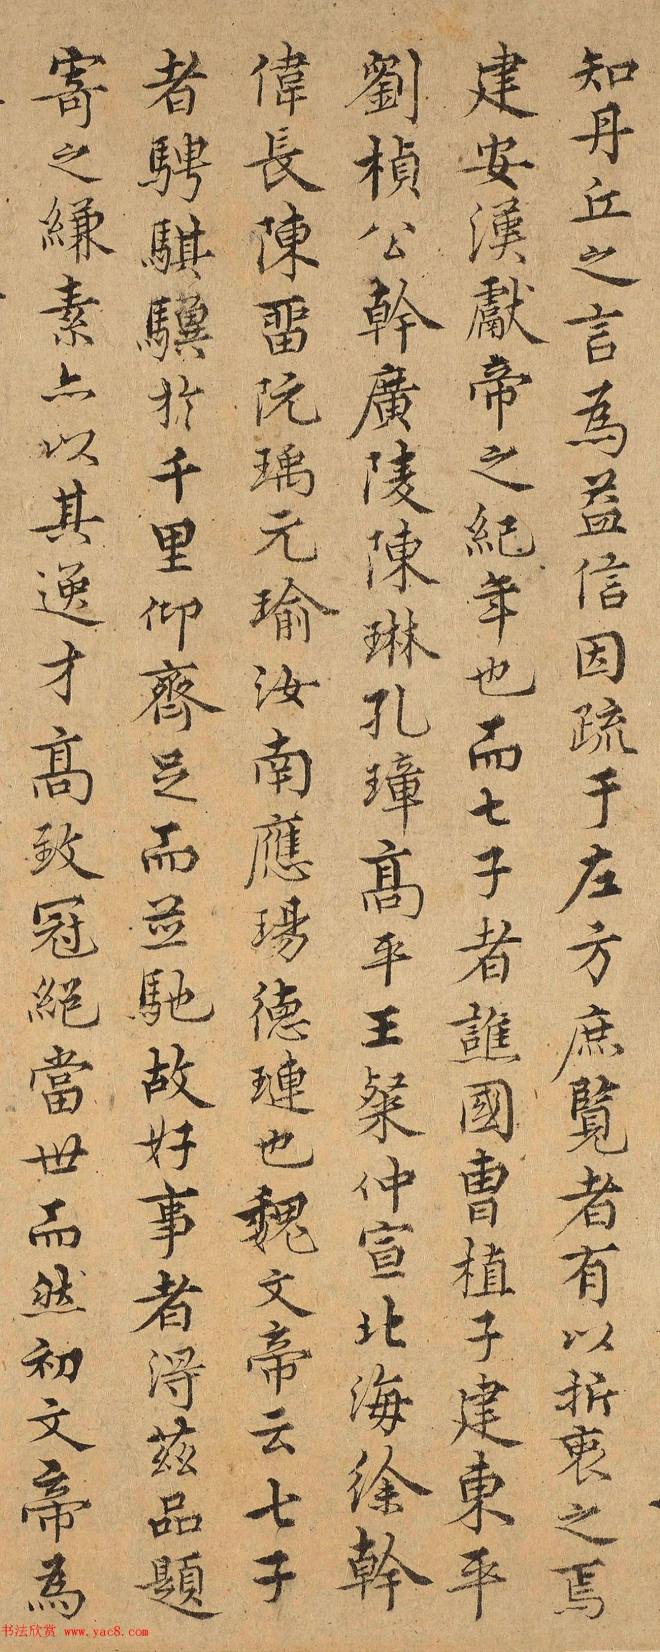 知丹丘之言為益信因疏于左方庶覽者有以折衷之焉
建安漢獻帝之紀年也而七子者譙國曹植子建東平
劉楨公幹廣陵陳琳孔璋高平王粲仲宣北海徐幹
偉長陳畱阮瑀元瑜汝南應瑒德璉也魏文帝云七子
者騁騏驥於千里仰齊足而並馳故好事者得茲品題
寄之縑素亦以其逸才高致冠絕當世而然初文帝為
书法欣赏 www.yac8.com